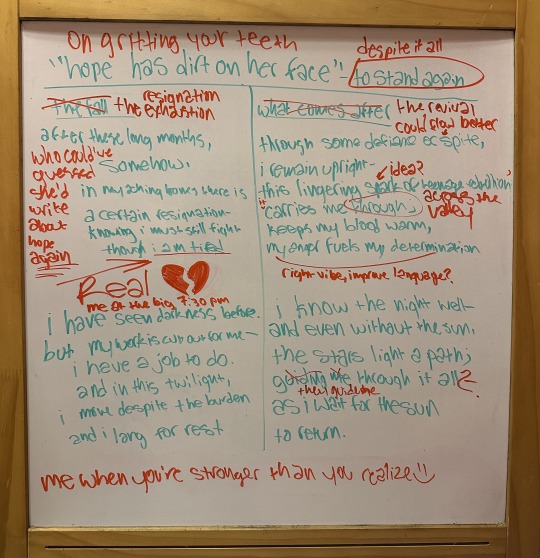 on gritting your teeth
"hope has dirt on her face"-
despite it all
to stand again
The fall
resignation
the exhaustion
after these long months,
somehow,
in my aching bones there is
a certain resignation-
knowing i must still fight
though i am tired
who could've
guessed
she'd
write
about
hope
again
Real
me at the bio, 7:30 pm
i have seen darkness before.
but my work is cut out for me-
i have a job to do.
and in this twilight,
i move despite the burden
and i long for rest
what comes after
the revival
could flow better
through some defiance or spite,
i remain upright-
idea?
this lingering spark of teenage rebellion,
it
carries me through,
across the
valley
keeps my blood warm,
my anger fuels my determination
right vibe, improve language?
i know the night well-
and even without the sun,
the stars light a path;
guiding me through it all
they guide me
as i wait for the sun
to return.
me when you're stronger than you realize